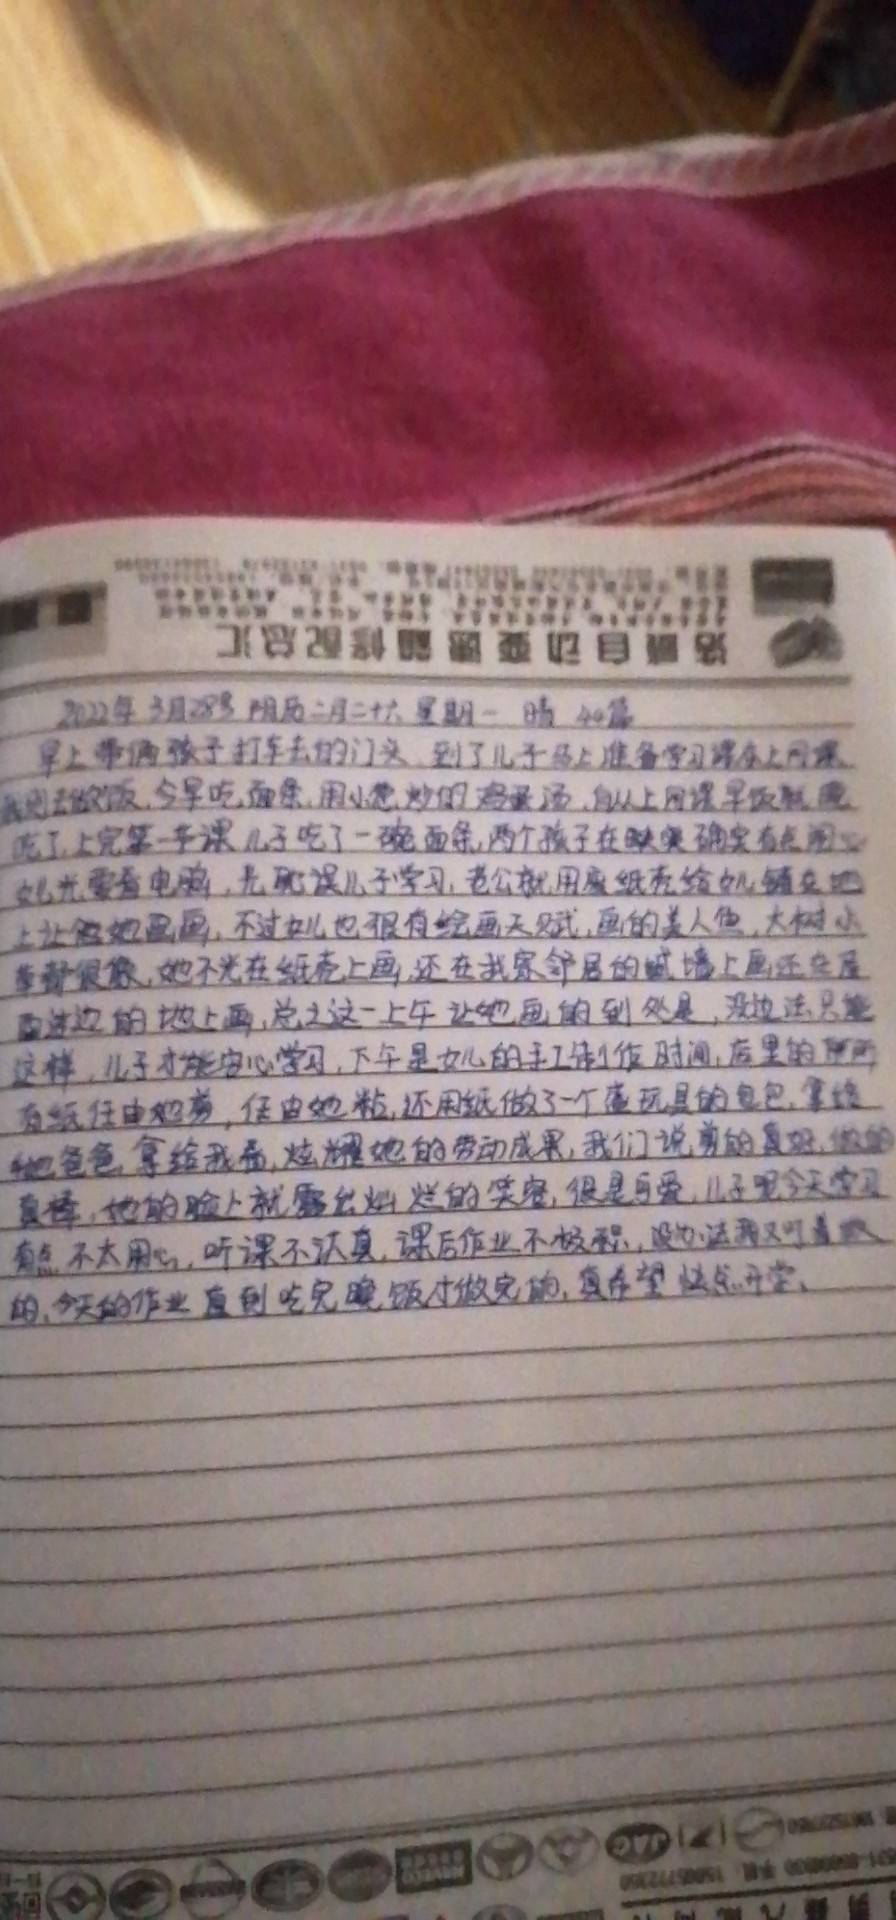 洛鼎自动变速箱修配总汇
2022年 3月28号 阴历二月二十六 星期一 晴 44篇
早上带俩孩子打车去的门头,到了儿子马上准备学习课本上网课,
我则去做饭,今早吃面条,用小葱炒的鸡蛋汤,自从上网课早饭就晚
吃了,上完第一节课儿子吃了一碗面条,两个孩子在确实有点闹心
女儿光要看电脑,光耽误儿子学习,老公就用废纸壳给女儿铺在地
上让她画画,不过女儿也很有绘画天赋,画的美人鱼,大树小
草都很像,她不光在纸壳上画,还在我家邻居的墙上画还在屋
里边的地上画,总之这一上午让她画的到处是,没办法只能
这样,儿子才能安心学习,下午是女儿的手工制作时间,店里的所
有纸任由她剪,任由她粘,还用纸做了一个查玩具的包包,拿给
她爸爸,拿给我看,炫耀她的劳动成果,我们说剪的真好,做的
真棒,她的脸上就露出灿烂的笑容,很是可爱,儿子呢今天学习
有点不太用心,听课不认真,课后作业不极积,没办法我又盯着做
的,今天的作业直到吃完晚饭才做完的,真希望快点开学,
JAC